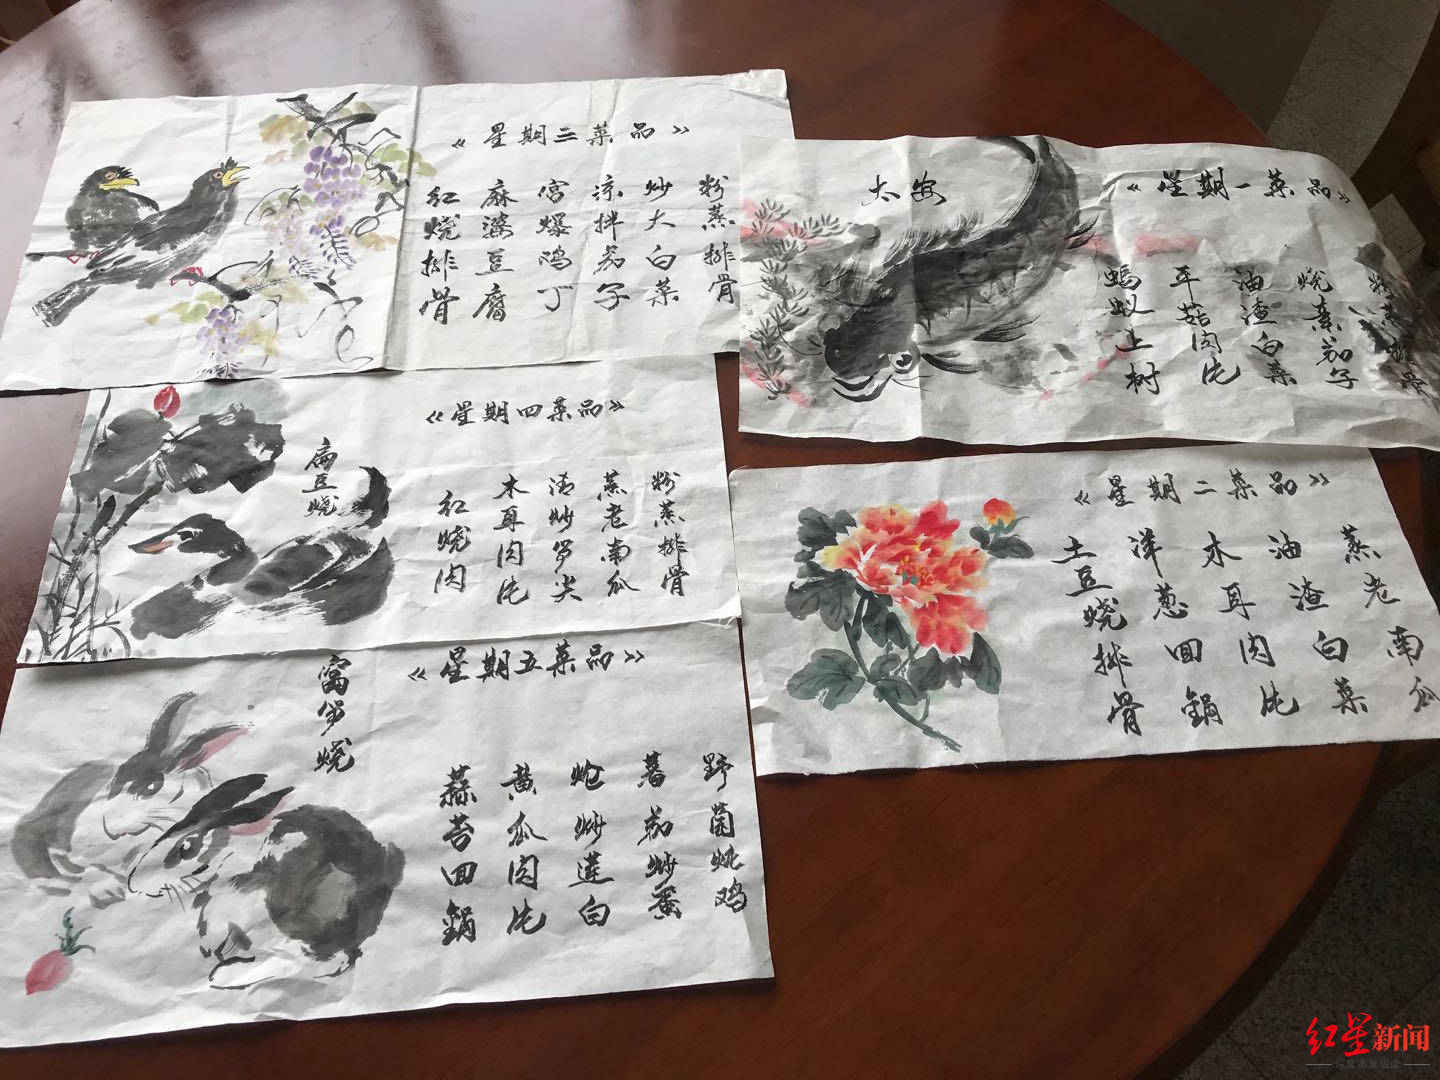 《星期三菜品》
红烧排骨
麻婆豆腐
宫爆鸡丁
凉拌茄子
炒大白菜
粉蒸排骨
太安
《星期一菜品》
蚂蚁上树
平菇肉片
油渣白菜
烧素茄子
粉蒸排骨
《星期四菜品》
扁豆烧
红烧肉
木耳肉片
清炒笋尖
蒸老南瓜
粉蒸排骨
《星期二菜品》
土豆烧排骨
洋葱回锅
木耳肉片
油渣白菜
蒸老南瓜
《星期五菜品》
窝笋烧
蒜苔回锅
黄瓜肉片
炝炒莲白
蕃茄炒蛋
野菌炖鸡
红星新闻
深度 态度 温度